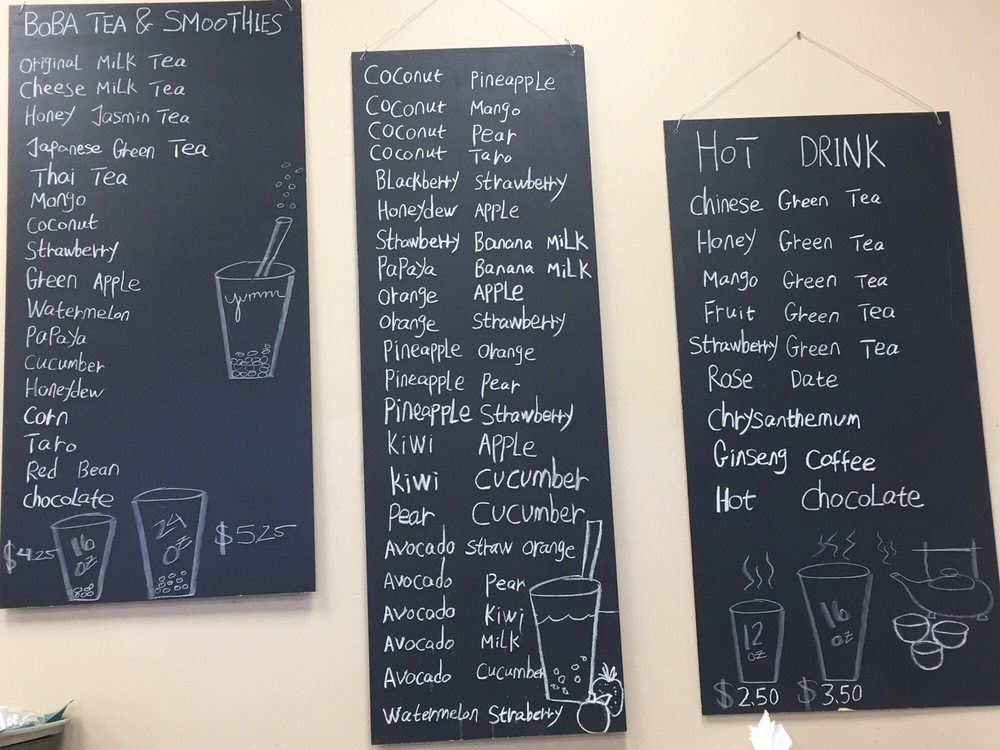 BOBA TEA & SMOOTHIES
Original Milk Tea
Cheese Milk Tea
Honey Jasmin Tea
Japanese Green Tea
Thai Tea
Mango
Coconut
Strawberry
Green Apple
Watermelon
Papaya
Cucumber
Honeydew
Corn
Taro
Red Bean
chocolate
yumm
$4.25 16 oz
24 oz $5.25
Coconut Pineapple
Coconut Mango
Coconut Pear
Coconut Taro
Blackberry Strawberry
Honeydew Apple
Strawberry Banana Milk
Papaya Banana Milk
Orange Apple
Orange Strawberry
Pineapple Orange
Pineapple Pear
Pineapple Strawberry
Kiwi Apple
Kiwi Cucumber
Pear Cucumber
Avocado Straw Orange
Avocado Pear
Avocado Kiwi
Avocado Milk
Avocado Cucumber
Watermelon Straberry
HOT DRINK
Chinese Green Tea
Honey Green Tea
Mango Green Tea
Fruit Green Tea
Strawberry Green Tea
Rose Date
Chrysanthemum
Ginseng Coffee
Hot Chocolate
12 oz
16 oz
$2.50 $3.50